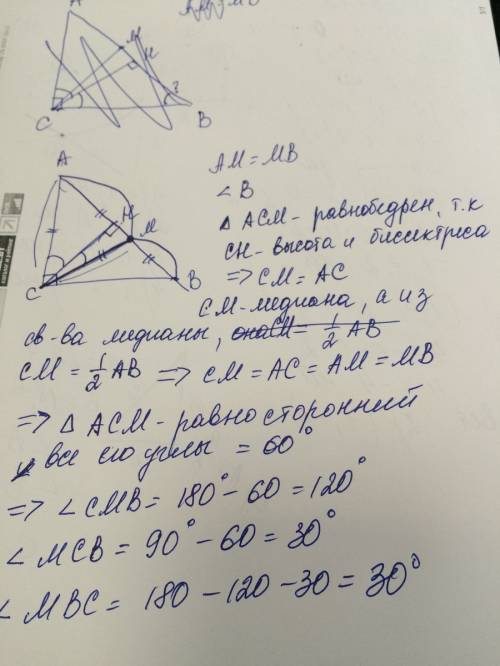 A
M
H
C
?
B
A
H
M
B
C
AM = MB
∠ B
△ ACM - равнобедрен, т.к
CH - высота и биссектриса
=> CM = AC
CM - медиана, а из
св-ва медианы, она CM = 1/2 AB
CM = 1/2 AB => CM = AC = AM = MB
=> △ ACM - равносторонний
все его углы = 60°
=> ∠ CMB = 180° - 60 = 120°
∠ MCB = 90° - 60 = 30°
∠ MBC = 180 - 120 - 30 = 30°